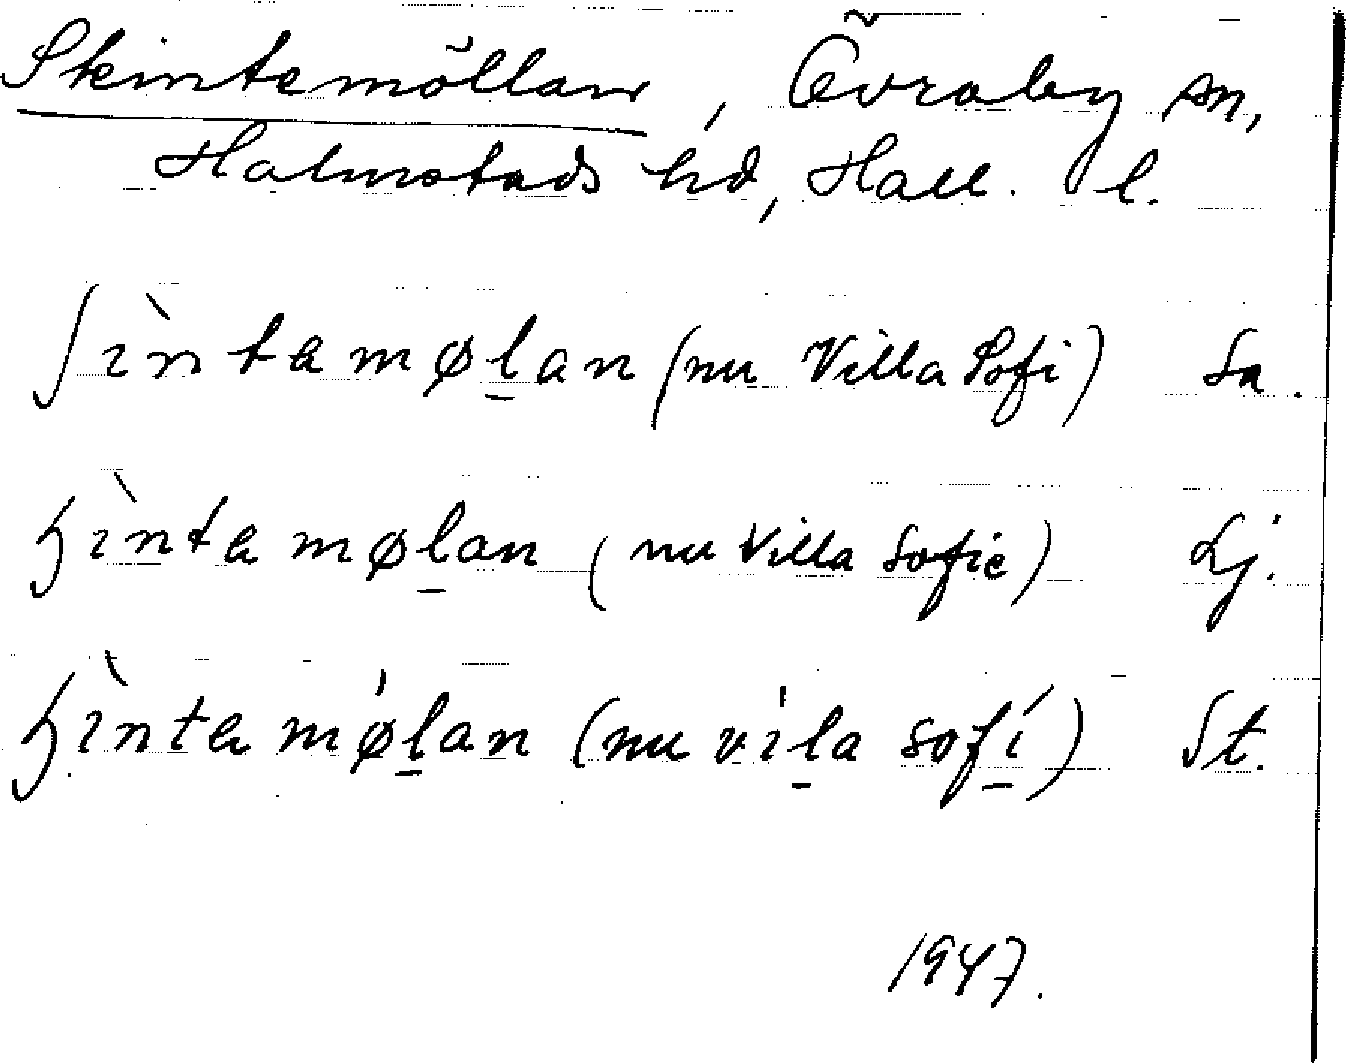 Skintemöllan, Övraby sn,
Halmstads hd, Hall. l.
ʃìntamøl̲an (nu Villa Sofi) Sa.
ɧìnta møl̲an (nu Villa Sofie) Lj.
ɧìnta mǿl̲an (nu vil̲a sofí̲) St.
1947.